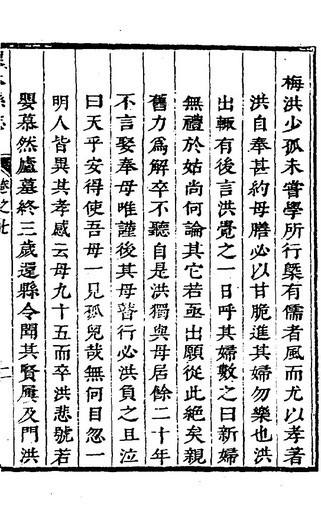 梅洪少孤未嘗學所行槩有儒者風而尤以孝著
洪自奉甚約母膳必以甘脆進其婦勿樂也洪
出輙有後言洪覺之一日呼其婦數之曰新婦
無禮於姑尚何論其它若亟出願從此絶矣親
舊力為解卒不聽自是洪獨與母居餘二十年
不言娶奉母唯謹後其母瞽行必洪負之且泣
曰天乎安得使吾母一見孤兒哉無何目忽一
明人皆異其孝感云母九十五而卒洪悲號若
嬰慕然廬墓終三歲還縣令聞其賢屢及門洪
卷之七
二